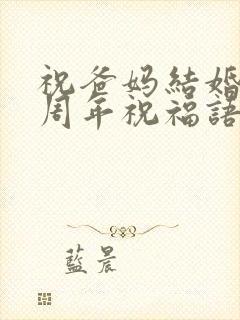 祝爸妈結婚
周年祝福語
藍晨